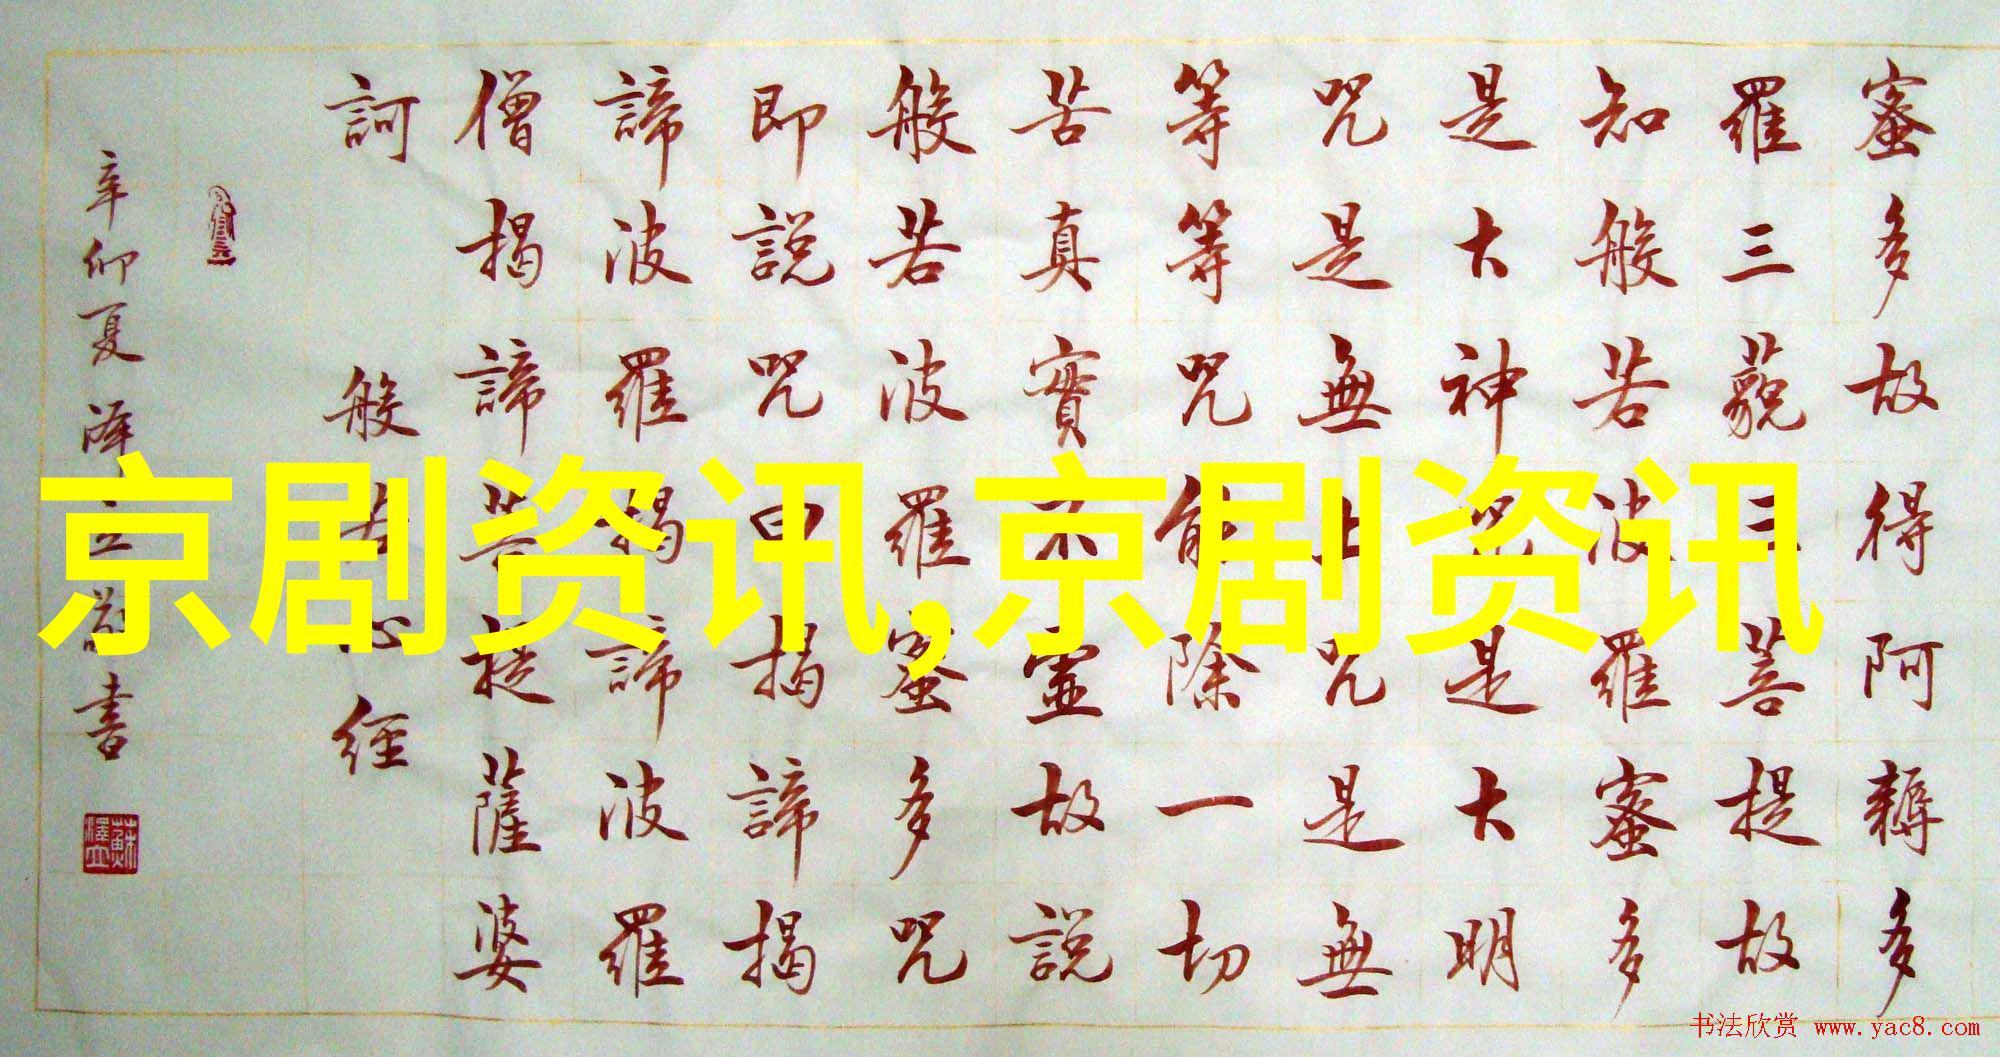 蜜多故得阿耨多
羅三藐三菩提故
知般若波羅蜜多
是大神咒是大明
咒是無上咒是無
等等咒能除一切
苦真實不虛故說
般若波羅蜜多咒
即說咒曰揭諦揭
諦波羅揭諦波羅
僧揭諦菩提薩婆
訶 般若心經
辛卯夏澤立敬書
蘇澤立
京剧资讯,京剧资讯
书法欣赏 www.yac8.com